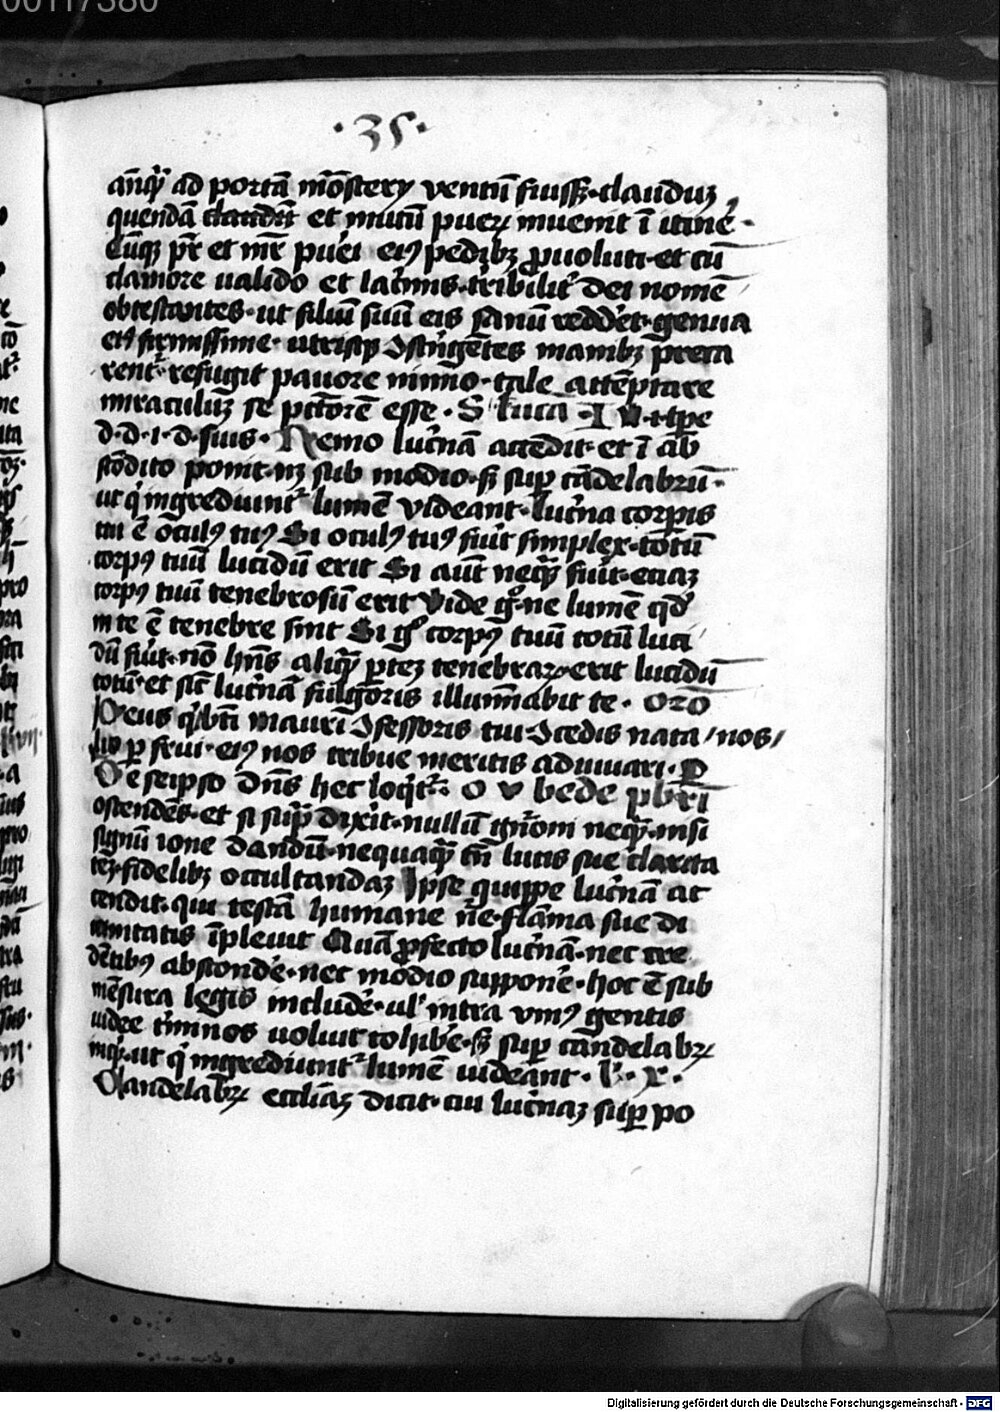 00117380
·35·
anq̃ȝ ad portã mõstery ventũ fuiss3·clauduȝ
quendã claudũ et mutũ pueȝ inuenit ĩ itine·
Cũq3 pr̃ et mr̃ pu'i ei9 pedib3 ꝓuoluti·et cũ
clamore ualido et lac'mis·t'ribilit' dei nomẽ
obtestantes·ut filiũ suũ eis sanũ redd'et·genua
ei9 firmissime·utrisq3 ɔstrig̃etes manib3 p̃cta
rent'·refugit pauore nimio·tale attẽptare
miraculũ se pctorẽ esse· S Lucã· I t·ihc
d·d·i·d·suis· Nemo luc'nã accẽdit·et ĩ ab
scõdito ponit·nȝ sub modio·s3 suꝑ cãdelabrũ·
ut q' ingrediunt' lumẽ videant·luc'na corpis
tui ẽ ocul9 tu9 Si ocul9 tu9 fu'it simplex·totũ
corp9 tuũ lucidũ erit Si aut̃ neq̃3 fu'it·eciaȝ
corp9 tuũ tenebrosũ erit Vide g°·ne lumẽ qd'
in te ẽ tenebre sint Si g° corp9 tuũ totũ luci
dũ fu'it·nõ hñs aliq̃ ꝑteȝ tenebraȝ·erit lucidũ
totũ·et sic̃ luc'nã fulgoris illumĩabit te· Orõ
Deus q' bt̃i mauri ɔfessoris tui ɔcedis nata/nos/
lio ꝑ frui·ei9 nos tribue meritis adiuuari·P
De seipso dñs hec loq't'· O V bede pbr̃i
ostendẽs·et si sup̃ dixit·nullũ gñroni neq̃·nisi
signũ ione dandũ·nequaq̃ tñ lucis sue clarita
teȝ·fidelib3 occultandaȝ Ipse quippe luc'nã ac
cendit·qui testã humane ñe·flãma sue di
uinitatis ĩpleuit Quã ꝓfecto luc'nã·nec cre
dẽtib9 abscond'e·nec modio suppon'e·hoc ẽ sub
mẽsura legis includ'e·ul' intra vni9 gentis
iudee t'minos uoluit cohib'e·s3 suꝑ candelabȝ
inq't·ut q' ingrediunt' lumẽ uideant·
Candelabȝ eccliãȝ dicit·cui luc'naȝ suꝑ po
Digitalisierung gefördert durch die Deutsche Forschungsgemeinschaft - DFG